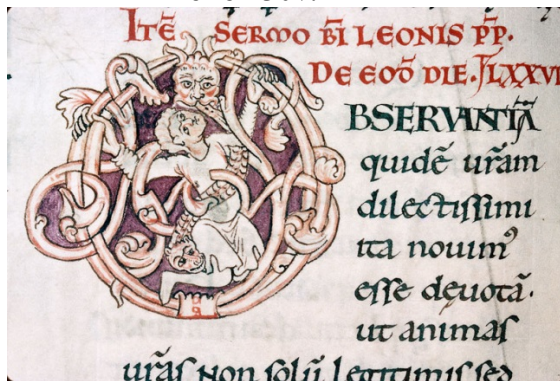 ITĒ SERMO BĪ LEONIS P̄P.
DE EOD̄ DIE. LXXVI
OBSERVANTIĀ
quidē ur̄am
dilectissimi
ita nouimꝰ
esse deuotā.
ut animas
ur̄as non solū legitimis sed